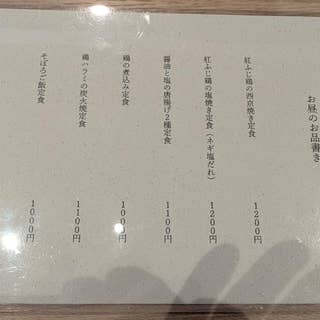 お昼のお品書き
紅ふじ鶏の西京焼き定食 1200円
紅ふじ鶏の塩焼き定食(ネギ塩だれ) 1200円
醤油と塩の唐揚げ2種定食 1100円
鶏の煮込み定食 1000円
鶏ハラミの炭火焼定食 1100円
そぼろご飯定食 1000円